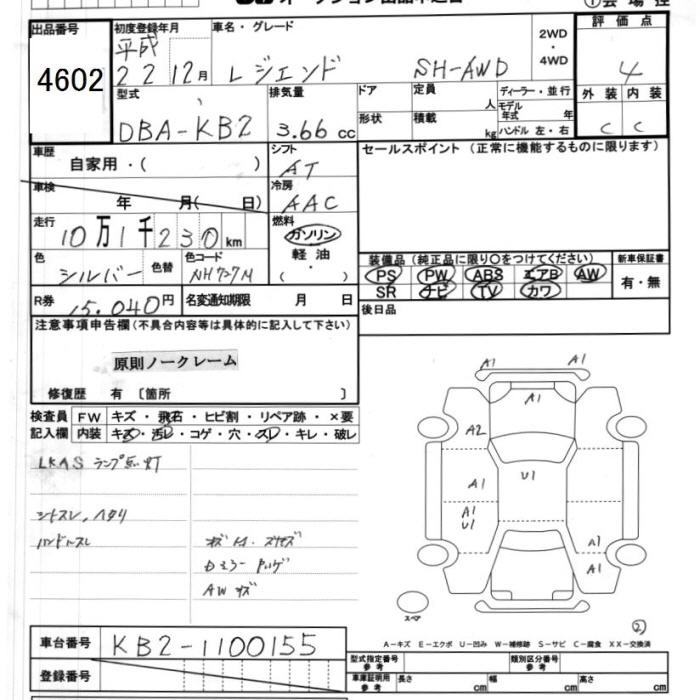 出品番号 初度登録年月 車名・グレード 2WD・4WD 評価点
4602 平成22 12月 レジェンド SH-AWD 4
型式 排気量 ドア 定員 人 ディーラー・並行 外装 内装
DBA-KB2 3.66 cc 形状 積載 kg モデル年式 年 ハンドル 左・右 C C
車歴 自家用・( ) シフト AT セールスポイント (正常に機能するものに限ります)
車検 年 月( 日) 冷房 AAC
走行 10万1千230km 燃料 ガソリン 軽油 ( ・ )
色 シルバー 色替 色コード NH737M
装備品 (純正品に限り○をつけてください) 新車保証書
PS PW ABS エアB AW 有・無
SR ナビ TV カワ
R券 15,040円 名変通知期限 月 日 後日品
注意事項申告欄(不具合内容等は具体的に記入して下さい)
原則ノークレーム
修復歴 有 〔箇所 〕
検査員 FW キズ・飛石・ヒビ割・リペア跡・×要
記入欄 内装 キズ・汚レ・コゲ・穴・スレ・キレ・破レ
LKAS ランプ点灯
シートスレ,ヘタリ
ハンドルスレ
AW キズ
A1 A1
A1
A2
A1 U1
A1
U1
A1
A1
スペア
②
A-キズ E-エクボ U-凹み W-補修跡 S-サビ C-腐食 XX-交換済
車台番号 KB2-1100155
型式指定番号 参考 類別区分番号 参考
登録番号 車庫証明用 参考 長さ cm 幅 cm 高さ cm